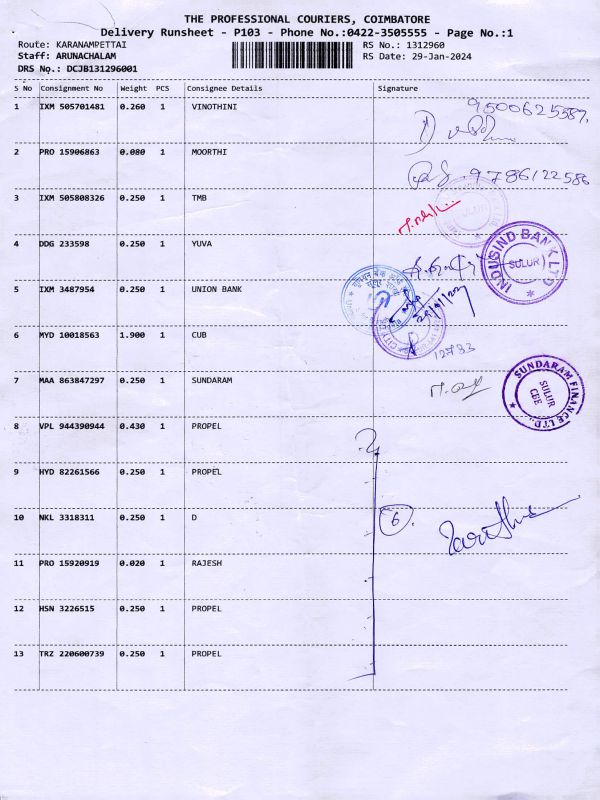 THE PROFESSIONAL COURIERS, COIMBATORE
Delivery Runsheet - P103 - Phone No.:0422-3505555 - Page No.:1
Route: KARANAMPETTAI RS No.: 1312960
Staff: ARUNACHALAM RS Date: 29-Jan-2024
DRS No.: DCJB131296001
S No Consignment No Weight PCS Consignee Details Signature
1 IXM 505701481 0.260 1 VINOTHINI 9500625587,
2 PRO 15906863 0.080 1 MOORTHI 9786122586
3 IXM 505808326 0.250 1 TMB
4 DDG 233598 0.250 1 YUVA
INDUSIND BANK LTD
SULUR
5 IXM 3487954 0.250 1 UNION BANK
6 MYD 10018563 1.900 1 CUB 12793
7 MAA 863847297 0.250 1 SUNDARAM
SUNDARAM FINANCE LTD.,
SULUR
CBE
8 VPL 944390944 0.430 1 PROPEL
9 HYD 82261566 0.250 1 PROPEL
10 NKL 3318311 0.250 1 D 6.
11 PRO 15920919 0.020 1 RAJESH
12 HSN 3226515 0.250 1 PROPEL
13 TRZ 220600739 0.250 1 PROPEL